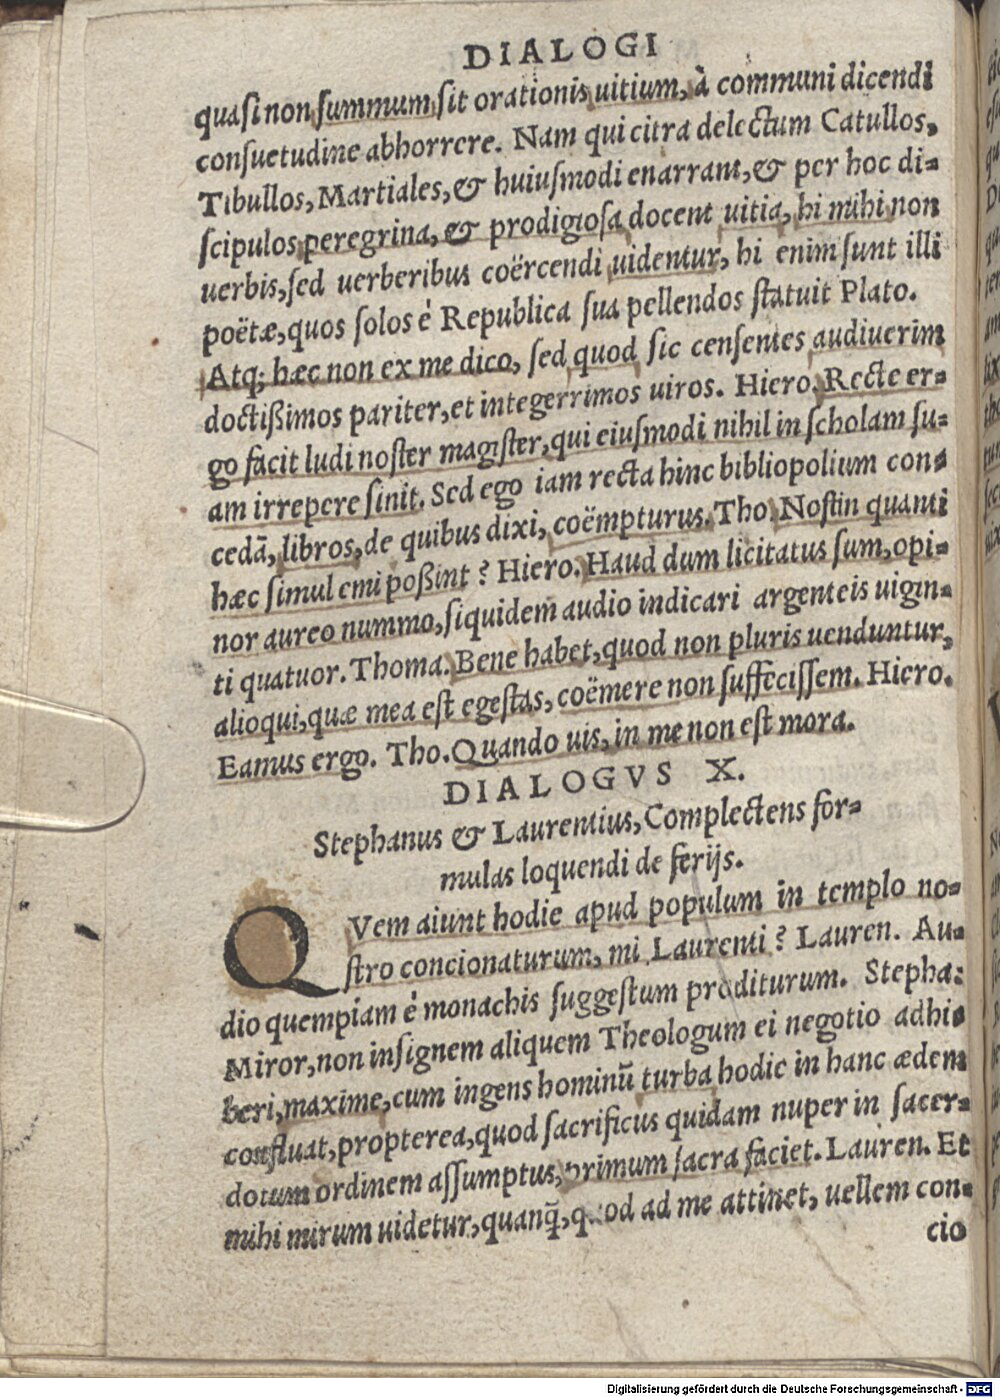 DIALOGI
quasi non summum sit orationis uitium, à communi dicendi
consuetudine abhorrere. Nam qui citra delectum Catullos,
Tibullos, Martiales, & huiusmodi enarrant, & per hoc di-
scipulos peregrina, & prodigiosa docent uitia, hi mihi non
uerbis, sed uerberibus coërcendi uidentur, hi enim sunt illi
poëtæ, quos solos è Republica sua pellendos statuit Plato.
Atq; hæc non ex me dico, sed quod sic censentes audiuerim
doctißimos pariter, et integerrimos uiros. Hiero. Recte er-
go facit ludi noster magister, qui eiusmodi nihil in scholam su-
am irrepere sinit. Sed ego iam recta hinc bibliopolium con-
cedā, libros, de quibus dixi, coëmpturus. Tho. Nostin quanti
hæc simul emi poßint? Hiero. Haud dum licitatus sum, opi-
nor aureo nummo, siquidem audio indicari argenteis uigin-
ti quatuor. Thoma. Bene habet, quod non pluris uenduntur,
alioqui, quæ mea est egestas, coëmere non suffecissem. Hiero.
Eamus ergo. Tho. Quando uis, in me non est mora.
DIALOGVS X.
Stephanus & Laurentius, Complectens for-
mulas loquendi de ferijs.
QVem aiunt hodie apud populum in templo no-
stro concionaturum, mi Laurenti? Lauren. Au-
dio quempiam è monachis suggestum proditurum. Stepha:
Miror, non insignem aliquem Theologum ei negotio adhi-
beri, maxime, cum ingens hominū turba hodie in hanc ædem
confluat, propterea, quod sacrificus quidam nuper in sacer-
dotum ordinem assumptus, primum sacra faciet. Lauren. Et
mihi mirum uidetur, quanq̃, quod ad me attinet, uellem con-
cio
Digitalisierung gefördert durch die Deutsche Forschungsgemeinschaft - DFG